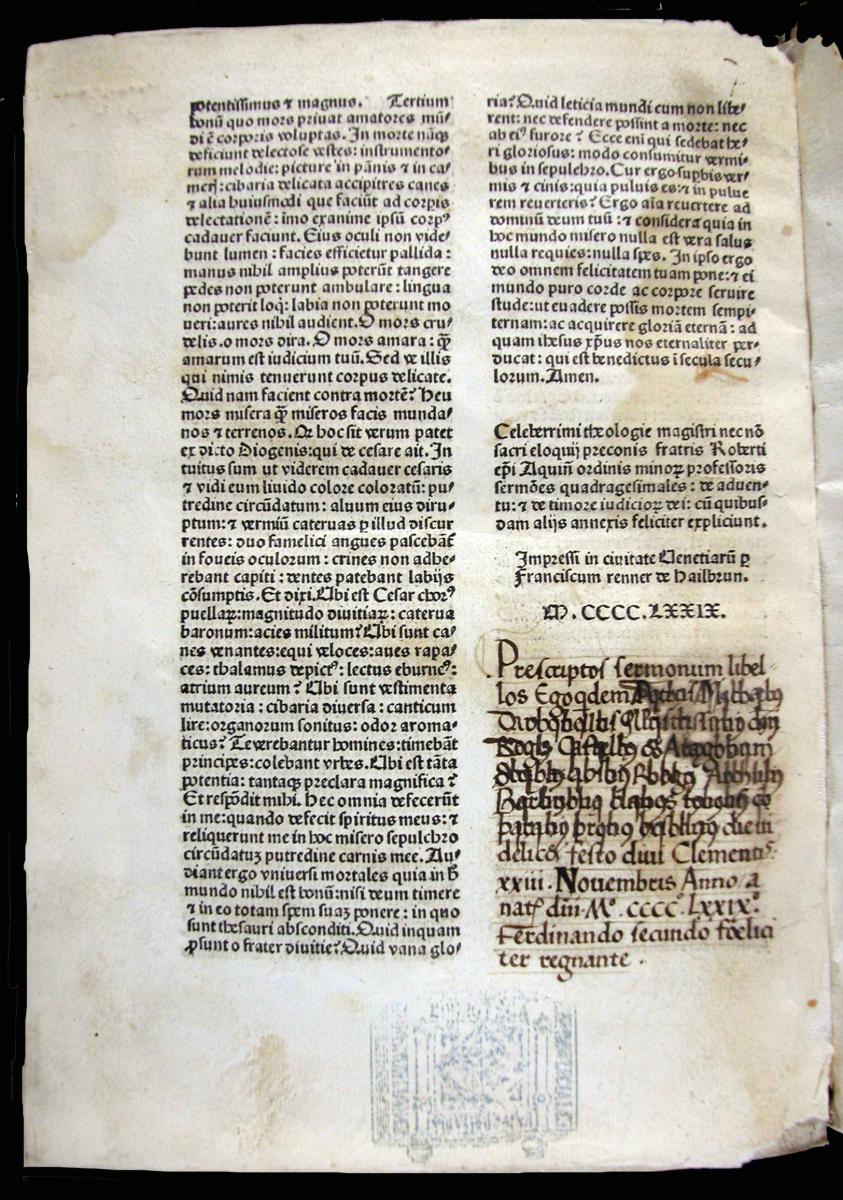 potentissimus ⁊ magnus. Tertium
bonū quo mors priuat amatores mū⸗
di ē corporis voluptas. In morte nāqꝫ
deficiunt delectose vestes: instrumento⸗
rum melodie: picture in pānis ⁊ in ca⸗
merꝭ: cibaria delicata accipitres canes
⁊ alia huiusmodi que faciūt ad corpis
delectationē: imo exanime ipsū corpꝰ
cadauer faciunt. Eius oculi non vide⸗
bunt lumen: facies efficietur pallida:
manus nihil amplius poterūt tangere
pedes non poterunt ambulare: lingua
non poterit loq̄: labia non poterunt mo
ueri: aures nihil audient. O mors cru⸗
delis. o mors dira. O mors amara: q̄ꝫ
amarum est iudicium tuū. Sed ve illis
qui nimis tenuerunt corpus delicate.
Quid nam facient contra mortē? Heu
mors misera q̄ꝫ miseros facis munda⸗
nos ⁊ terrenos. Qꝫ hoc sit verum patet
ex dicto Diogenis: qui de cesare ait. In
tuitus sum ut viderem cadauer cesaris
⁊ vidi eum liuido colore coloratū: pu⸗
tredine circūdatum: aluum eius diru⸗
ptum: ⁊ vermiū cateruas ꝑ illud discur
rentes: duo famelici angues pascebant̄
in foueis oculorum: crines non adhe⸗
rebant capiti: dentes patebant labijs
cōsumptis. Et dixi. Ubi est Cesar chorꝰ
puellaꝝ: magnitudo diuitiaꝝ: caterua
baronum: acies militum? Ubi sunt ca⸗
nes venantes: equi veloces: aues rapa⸗
ces: thalamus depictꝰ: lectus eburneꝰ:
atrium aureum? Ubi sunt vestimenta
mutatoria: cibaria diuersa: canticum
lire: organorum sonitus: odor aroma⸗
ticus? Te verebantur homines: timebāt
principes: colebant vrbes. Ubi est tāta
potentia: tantaqꝫ preclara magnifica?
Et respōdit mihi. Hec omnia defecerūt
in me: quando defecit spiritus meus: ⁊
reliquerunt me in hoc misero sepulchro
circūdatuꝫ putredine carnis mee. Au⸗
diant ergo vniuersi mortales quia in h̄
mundo nihil est bonū: nisi deum timere
⁊ in eo totam spem suaꝫ ponere: in quo
sunt thesauri absconditi. Quid inquam
ꝓsunt o frater diuitie? Quid vana glo⸗
ria? Quid leticia mundi cum non libe⸗
rent: nec defendere possint a morte: nec
ab eiꝰ furore? Ecce eni qui sedebat he⸗
ri gloriosus: modo consumitur vermi⸗
bus in sepulchro. Cur ergo supbis ver⸗
mis ⁊ cinis: quia puluis es: ⁊ in pulue
rem reuerteris? Ergo aīa reuertere ad
dominū deum tuū: ⁊ considera quia in
hoc mundo misero nulla est vera salus
nulla requies: nulla spes. In ipso ergo
deo omnem felicitatem tuam pone: ⁊ ei
mundo puro corde ac corpore seruire
stude: ut euadere possis mortem sempi⸗
ternam: ac acquirere gloriā eternā: ad
quam ihesus xp̄us nos eternaliter per⸗
ducat: qui est benedictus ī secula secu⸗
lorum. Amen.
Celeberrimi theologie magistri nec nō
sacri eloquij preconis fratris Roberti
ep̄i Aquiñ ordinis minoꝝ professoris
sermōes quadragesimales: de aduen⸗
tu: ⁊ de timore iudicioꝝ dei: cū quibus⸗
dam alijs annexis feliciter expliciunt.
Impressi in ciuitate Uenetiarū ꝑ
Franciscum renner de Hailbrun.
M. CCCC. LXXIX.
Prescriptos sermonum libel
los Ego qdem
die iu
delicꝫ festo diui Clementis
xxiii. Nouembris Anno a
nat̄ dn̄i Mº CCCCº LXXIXº
Ferdinando secundo fœlici
ter regnante.